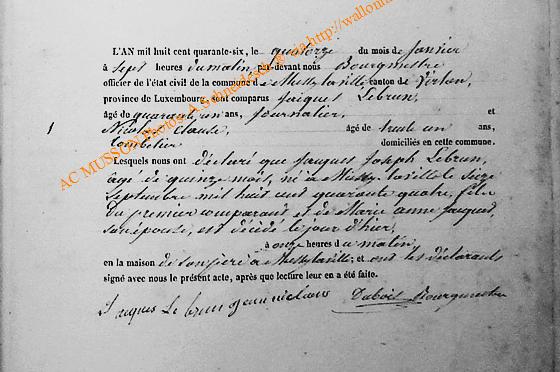 L'AN mil huit cent quarante-six, le quatorze du mois de janvier
à sept heures du matin par-devant nous Bourgmestre
officier de l'état civil de la commune de Mussy la ville canton de Virton,
province de Luxembourg, sont comparus Jacques Lebrun,
âgé de quarante un ans, journalier, et
1 Nicolas Claude, âgé de trente un ans,
domiciliés en cette commune.
Lesquels nous ont déclaré que Jacques Joseph Lebrun,
âgé de quinze mois, né à Mussy la ville le seize
Septembre mil huit cent quarante quatre, fils
du premier comparant et de Marie anne Jacques,
son épouse, est décédé le jour d'hier,
à onze heures du matin,
en la maison de son père à Mussy la ville; et ont les déclarants
signé avec nous le présent acte, après que lecture leur en a été faite.
J acques Le brun jean nicolas Dubois Bourgmestre
AC MUSSON Photos A Schneidesch @ via http://wallonia